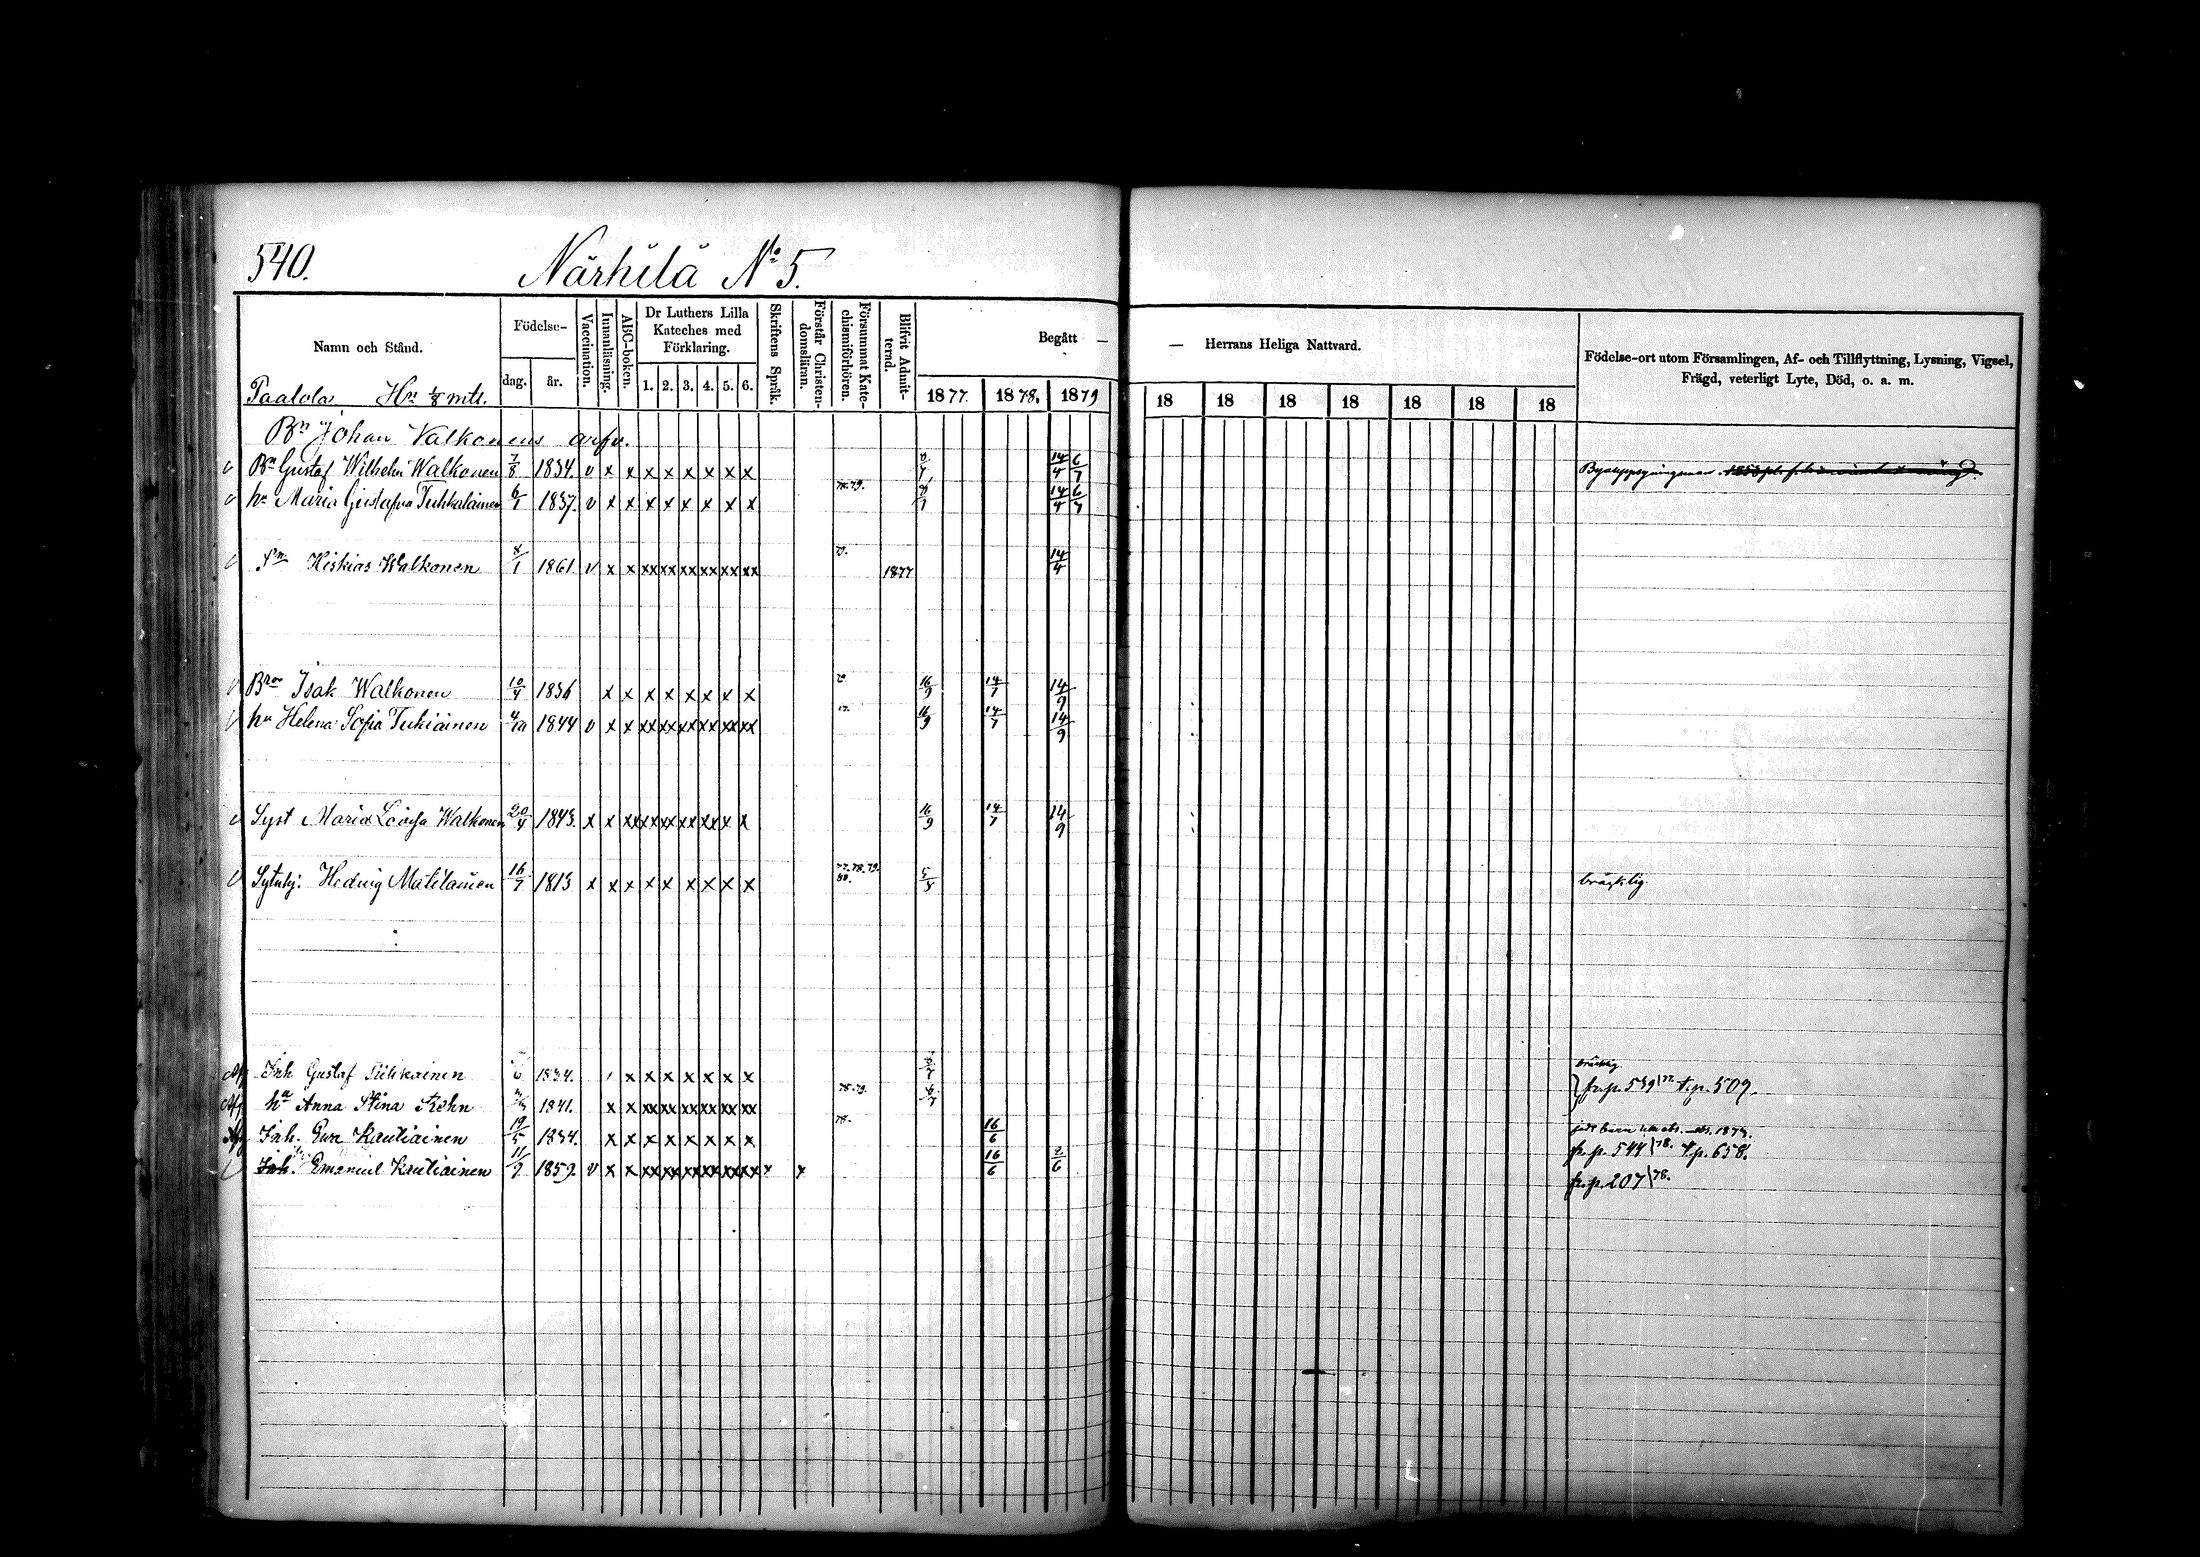 540. Närhilä No 5.
Namn och Stånd. Födelse- dag. år. Vaccination. Innanläsning. ABC-boken. Dr Luthers Lilla Kateches med Förklaring. 1. 2. 3. 4. 5. 6. Skriftens Språk. Förstår Christendomsläran. Försummat Katechismiförhören. Blifvit Admitterad. Begått — — Herrans Heliga Nattvard. Födelse-ort utom Församlingen, Af- och Tillflyttning, Lysning, Vigsel, Frägd, veterligt Lyte, Död, o. a. m.
1877. 1878. 1879 18 18 18 18 18 18 18
Paalola Hn 1/8 mtl.
Bn Johan Valkonens
v Bn Gustaf Wilhelm Walkonen 7/8 1834. v x x x x x x x x 14/4 6/7
v hu Maria Gustafva Tuhkalainen 6/1 1837. v x x x x x x x x 78.79. 14/4 6/7
v Sn Hiskias Walkonen 8/1 1861. v x x xx xx xx xx xx xx 1877 14/4
v Bror Isak Walkonen 10/4 1836 x x x x x x x x 16/9 14/7 14/9
v hu Helena Sofia Tukiainen 1844 v x x xx xx xx xx xx xx 16/9 14/7 14/9
v Syst Maria Lovisa Walkonen 20/4 1843. x x xx xx xx xx xx x x 16/9 14/7 14/9
v Hedvig Matilainen 16/7 1813 x x x x x x x x x 77.78.79. 80. 5/8 bräcklig
Inh Gustaf 1834. x x x x x x x bräcklig
ha Anna Stina Rehn 1841. x x xx xx xx xx xx xx 78.79. fr.p. 539/77 t.p. 509.
Inh. Eva Kautiainen 19/5 1834. x x x x x x x x 78. 16/6 1879.
fr.p. 544/78. t.p. 658.
Inh. Emanuel Kautiainen 11/9 1859. v x x xx xx xx xx xx xx x x 16/6 2/6
fr.p. 207/78.